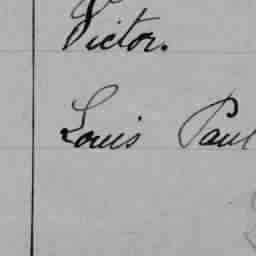 Victor.
Louis Paul